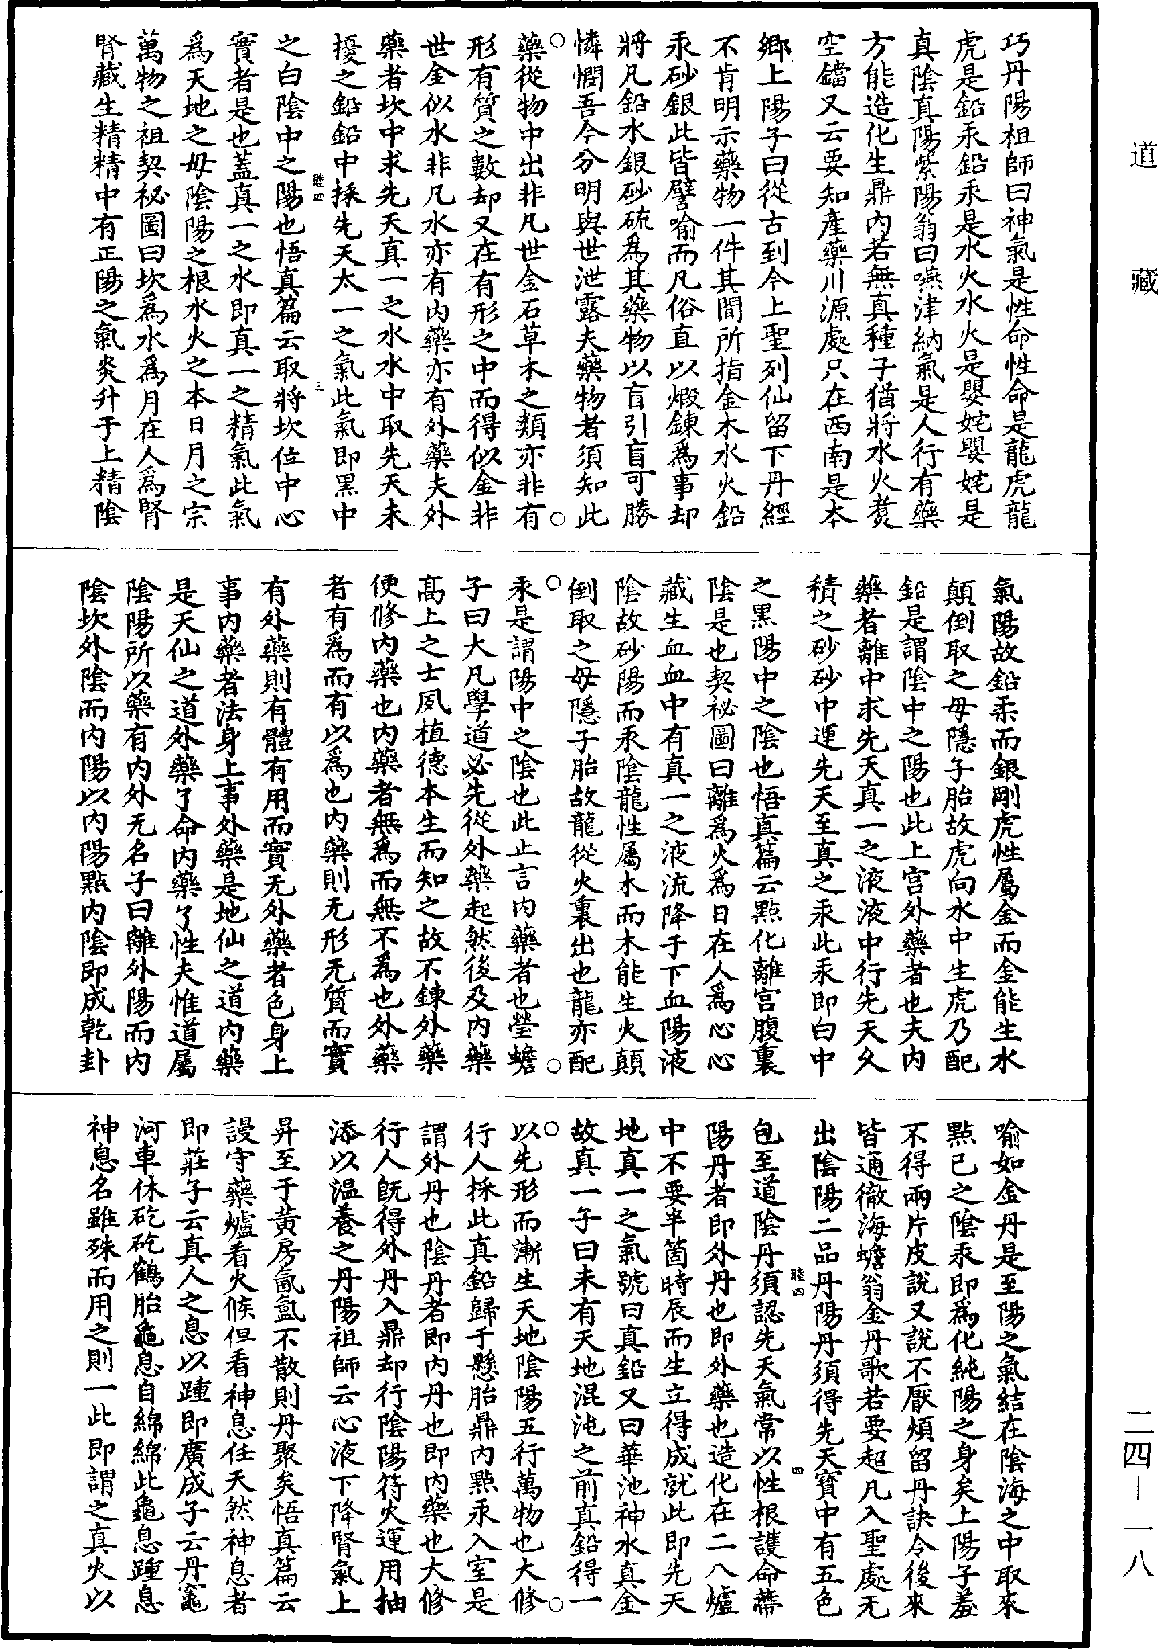 道藏
巧丹陽祖師曰神氣是性命性命是龍虎龍
虎是鉛汞鉛汞是水火水火是嬰姹嬰姹是
真陰真陽紫陽翁曰嚥津納氣是人行有藥
方能造化生鼎內若無真種子猶將水火煑
空鐺又云要知產藥川源處只在西南是本
鄉上陽子曰從古到今上聖列仙留下丹經
不肯明示藥物一件其間所指金木水火鉛
汞砂銀此皆譬喻而凡俗直以煅鍊為事却
將凡鉛水銀砂硫為其藥物以盲引盲可勝
憐憫吾今分明與世泄露夫藥物者須知此
藥從物中出非凡世金石草木之類亦非有
形有質之數却又在有形之中而得似金非
世金似水非凡水亦有內藥亦有外藥夫外
藥者坎中求先天真一之水水中取先天未
擾之鉛鉛中採先天太一之氣此氣即黑中
睦四
三
之白陰中之陽也悟真篇云取將坎位中心
實者是也蓋真一之水即真一之精氣此氣
為天地之母陰陽之根水火之本日月之宗
萬物之祖契祕圖曰坎為水為月在人為腎
腎藏生精精中有正陽之氣炎升于上精陰
氣陽故鉛柔而銀剛虎性屬金而金能生水
顛倒取之母隱子胎故虎向水中生虎乃配
鉛是謂陰中之陽也此上宮外藥者也夫內
藥者離中求先天真一之液液中行先天久
積之砂砂中運先天至真之汞此汞即白中
之黑陽中之陰也悟真篇云點化離宮腹裏
陰是也契祕圖曰離為火為日在人為心心
藏生血血中有真一之液流降于下血陽液
陰故砂陽而汞陰龍性屬木而木能生火顛
倒取之母隱子胎故龍從火裏出也龍亦配
汞是謂陽中之陰也此止言內藥者也瑩蟾
子曰大凡學道必先從外藥起然後及內藥
高上之士夙植德本生而知之故不鍊外藥
便修內藥也內藥者無為而無不為也外藥
者有為而有以為也內藥則无形无質而實
有外藥則有體有用而實无外藥者色身上
事內藥者法身上事外藥是地仙之道內藥
是天仙之道外藥了命內藥了性夫惟道屬
陰陽所以藥有內外无名子曰離外陽而內
陰坎外陰而內陽以內陽點內陰即成乾卦
喻如金丹是至陽之氣結在陰海之中取來
點已之陰汞即為化純陽之身矣上陽子羞
不得兩片皮說又說不厭煩留丹訣今後來
皆通徹海蟾翁金丹歌若要超凡入聖處无
出陰陽二品丹陽丹須得先天寶中有五色
包至道陰丹須認先天氣常以性根護命蔕
睦四
四
陽丹者即外丹也即外藥也造化在二八爐
中不要半箇時辰而生立得成就此即先天
地真一之氣號曰真鉛又曰華池神水真金
故真一子曰未有天地混沌之前真鉛得一
以先形而漸生天地陰陽五行萬物也大修
行人採此真鉛歸于懸胎鼎內點汞入室是
謂外丹也陰丹者即內丹也即內藥也大修
行人既得外丹入鼎却行陰陽符火運用抽
添以溫養之丹陽祖師云心液下降腎氣上
昇至于黃房氤氳不散則丹聚矣悟真篇云
謾守藥爐看火候但看神息任天然神息者
即莊子云真人之息以踵即廣成子云丹竈
河車休矻矻鶴胎龜息自綿綿此龜息踵息
神息名雖殊而用之則一此即謂之真火以
二四—一八